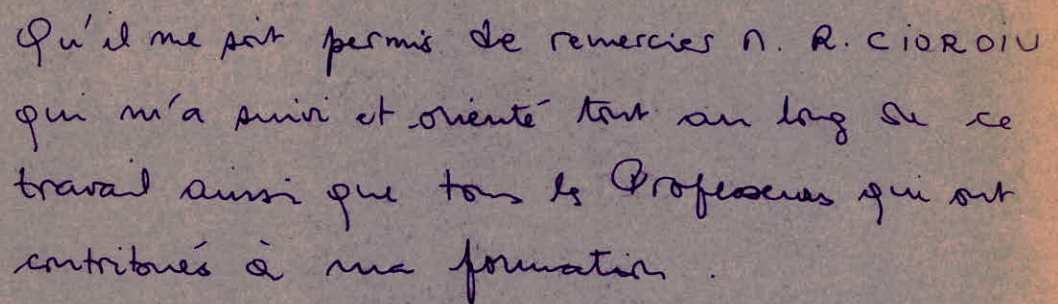 Qu'il me soit permis de remercier M. R. CIOROIU
qui m'a suivi et orienté tout au long de ce
travail aussi que tous les Professeurs qui ont
contribués à ma formation.